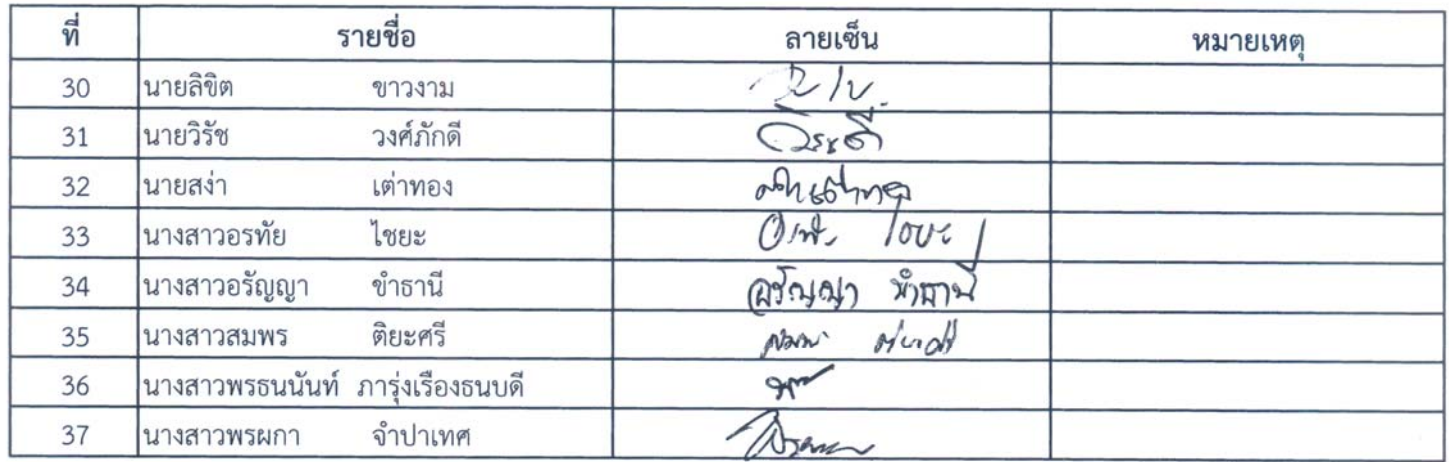 ที่ รายชื่อ ลายเซ็น หมายเหตุ
30 นายลิขิต ขาวงาม
31 นายวิรัช วงศ์ภักดี
32 นายสง่า เต่าทอง
33 นางสาวอรทัย ไชยะ
34 นางสาวอรัญญา ขำธานี อรัญญา ขำธานี
35 นางสาวสมพร ติยะศรี
36 นางสาวพรธนนันท์ ภารุ่งเรืองธนบดี
37 นางสาวพรผกา จำปาเทศ